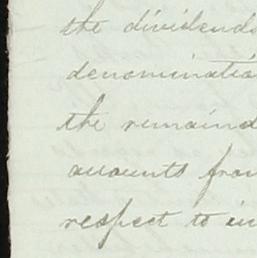 the dividends
denominatio
the remaind
accounts from
respect to in